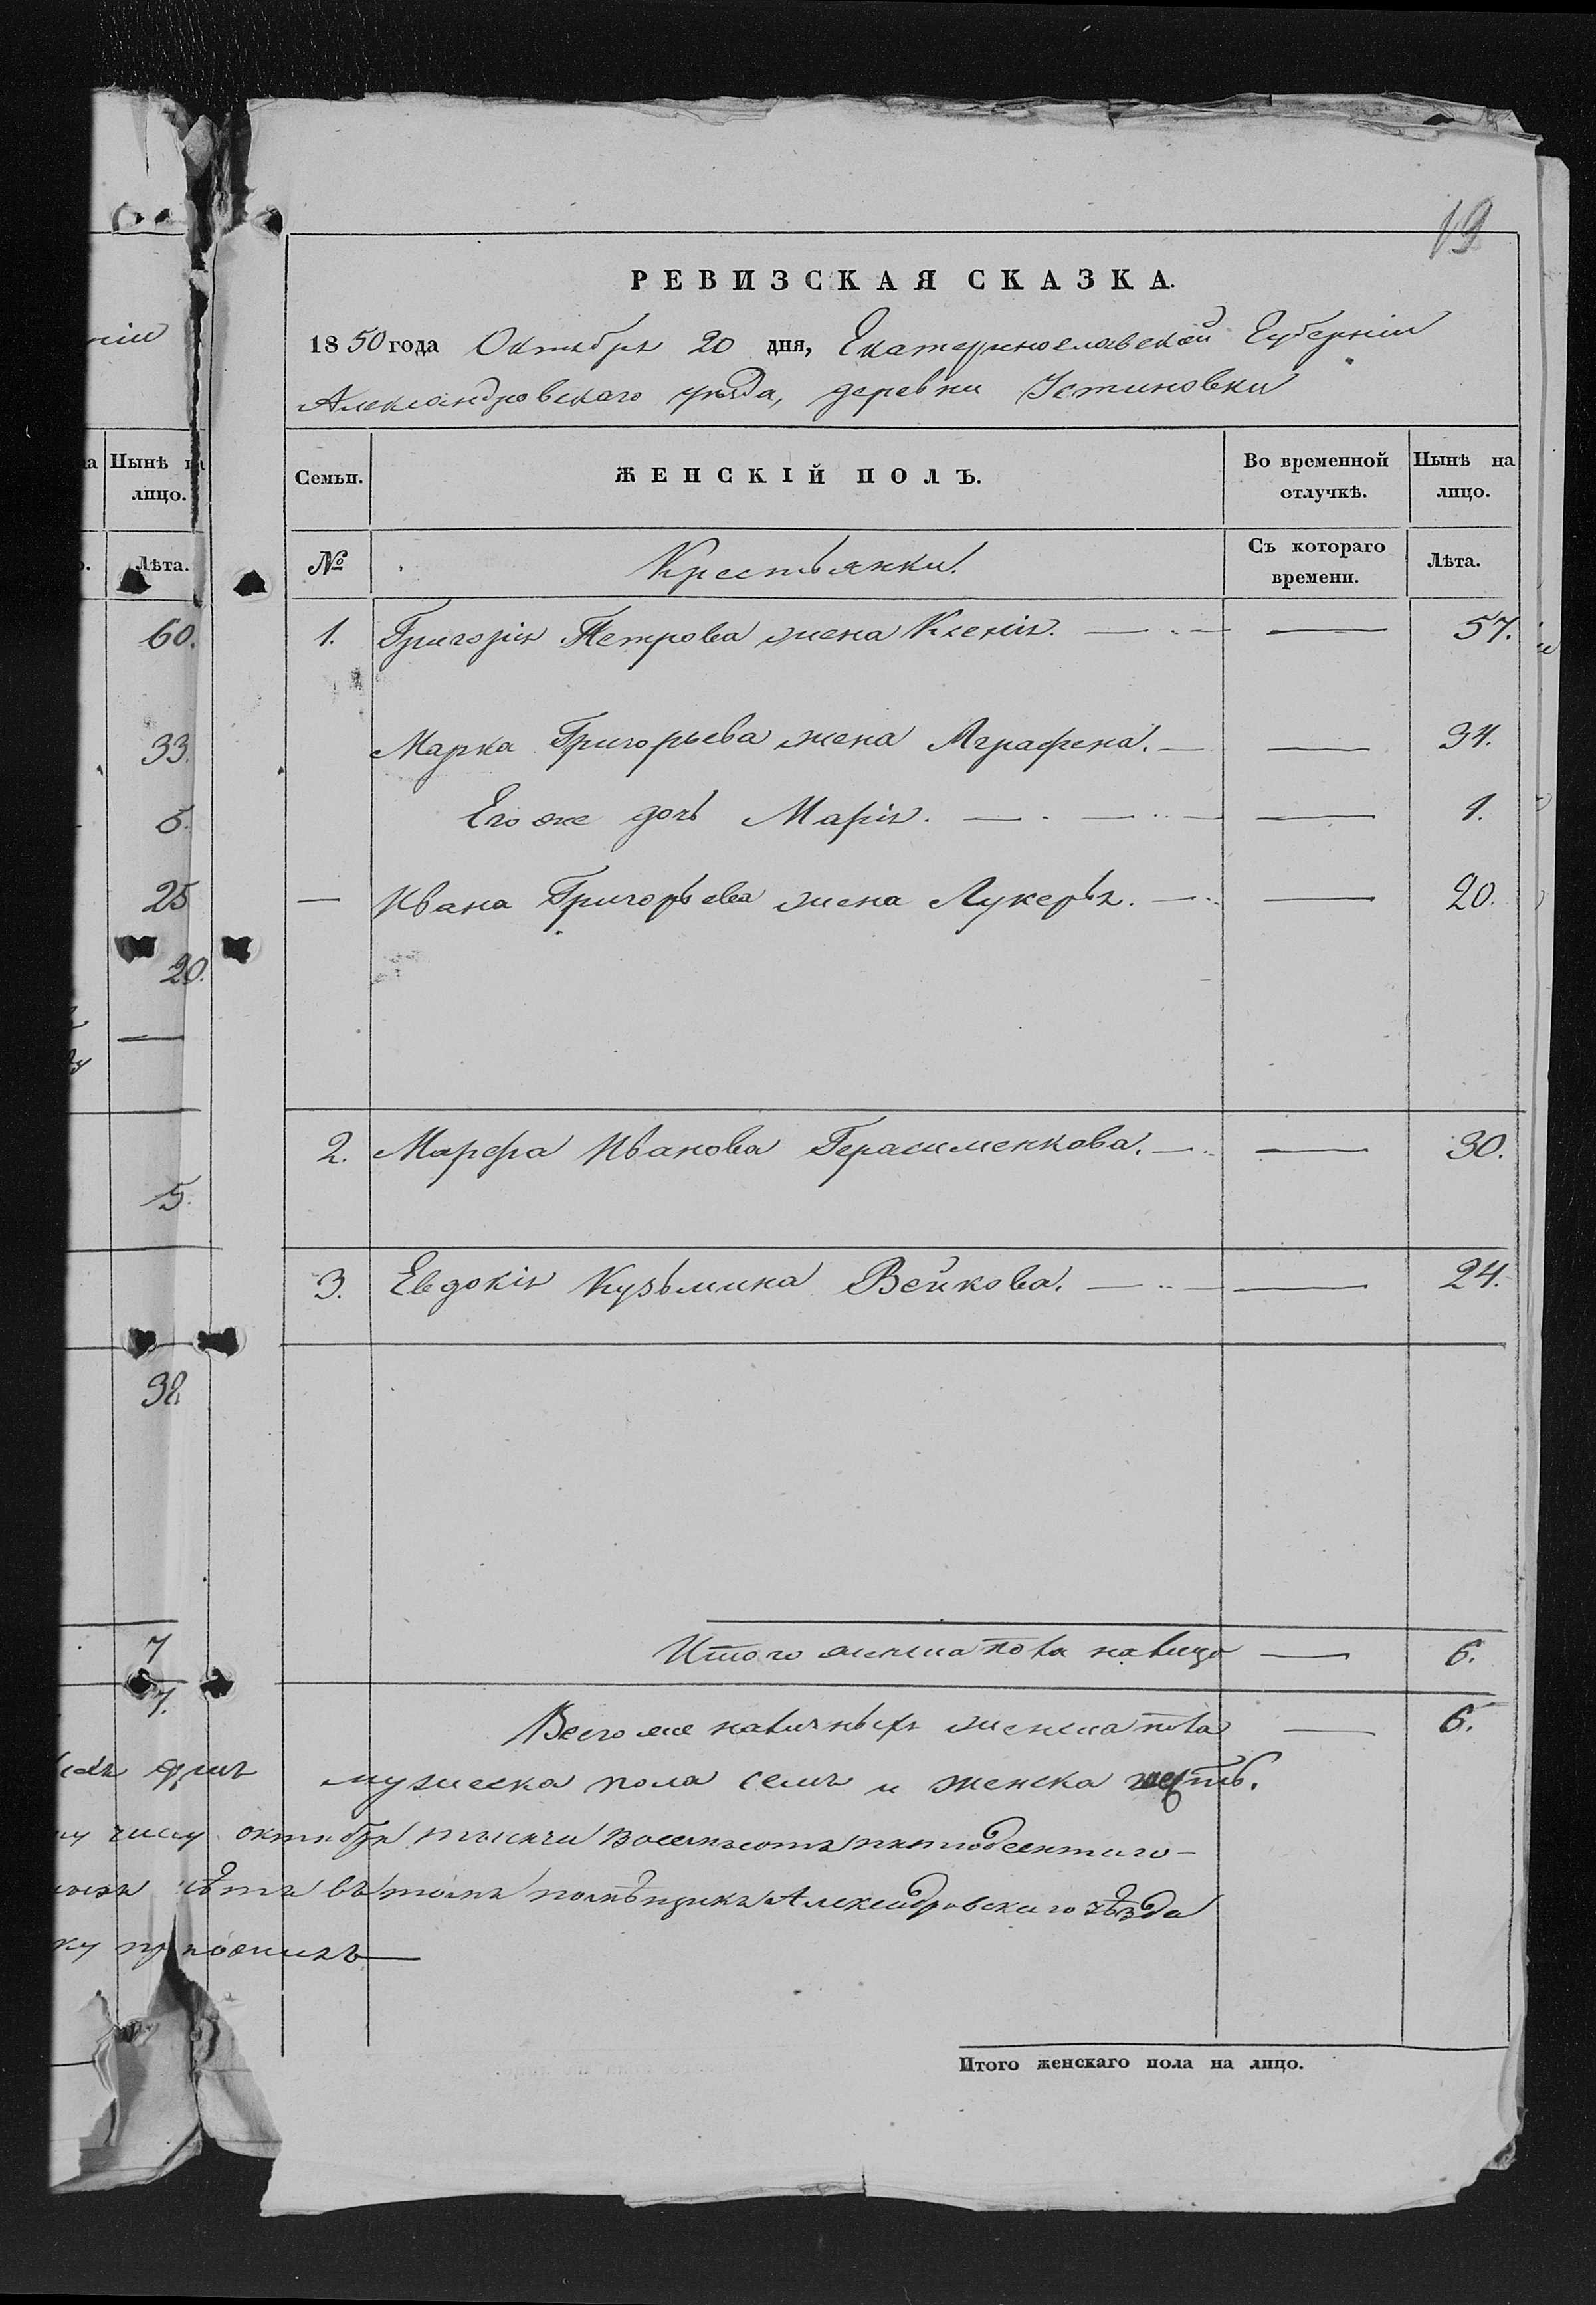 19
РЕВИЗСКАЯ СКАЗКА.
1850 года Октября 20 дня, Екатеринославской Губерніи
Александровскаго уезда, деревни Устиновки
Нынѣ на
лицо.
Лѣта.
60.
33.
5.
25
20.
5.
38.
7
7.
Семьи. ЖЕНСКІЙ ПОЛЪ. Во временной отлучкѣ. Нынѣ на лицо.
№ Крестьянки. Съ котораго времени. Лѣта.
1. Григорія Петрова жена Ксенія. — — 57.
Марка Григорьева жена Аграфена. — — 34.
Его же дочь Марія. — — — 1.
— Ивана Григорьева жена Лукерья. — — 20.
2. Марфа Иванова Герасименкова. — — 30.
3. Евдокія Кузьмина Вейкова. — — 24.
Итого женска пола налицо — 6.
Всего же наличныхъ женска пола — 6.
мужеска пола семь и женска шесть.
числу октября тысячи восемьсотъ пятодесятаго-
въ томъ помѣщикъ Александровскаго уѣзда
приложилъ —
Итого женскаго пола на лицо.